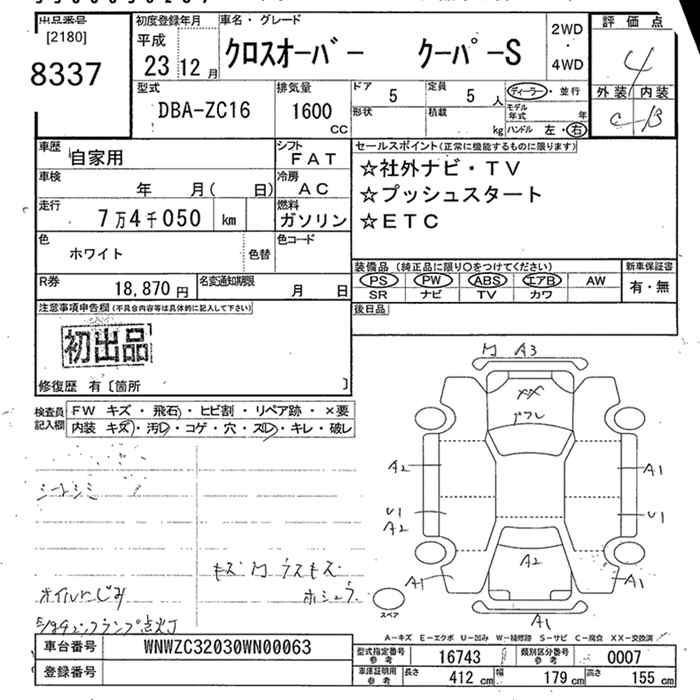 出品番号
[2180]
8337
初度登録年月
平成
23 12 月
車名・グレード
クロスオーバー クーパーS
2WD
・
4WD
評価点
4
型式
DBA-ZC16
排気量
1600
CC
ドア
5
定員
5 人
形状
積載
kg
ディーラー・並行
モデル
年式 年
ハンドル 左・右
外装 内装
C B
車歴
自家用
シフト
FAT
車検
年 月( 日)
冷房
AC
走行
7万4千050 km
燃料
ガソリン
色
ホワイト
色替
色コード
R券
18,870 円
名変通知期限
月 日
セールスポイント(正常に機能するものに限ります)
☆社外ナビ・TV
☆プッシュスタート
☆ETC
装備品 (純正品に限り○をつけてください)
新車保証書
PS PW ABS エアB AW
SR ナビ TV カワ
有・無
後日品
注意事項申告欄(不具合内容等は具体的に記入して下さい)
初出品
修復歴 有〔箇所 〕
検査員
記入欄
FW キズ・飛石・ヒビ割・リペア跡・×要
内装 キズ・汚レ・コゲ・穴・スレ・キレ・破レ
シートシミ
キズ
ウスキズ
オイルにじみ
エンジンチェックランプ点灯
A3
XX
A2
A1
U1
A2
U1
A2
A1
A1
A1
スペア
A-キズ E-エクボ U-凹み W-補修跡 S-サビ C-腐食 XX-交換済
車台番号
WNWZC32030WN00063
登録番号
型式指定番号
参考
16743
類別区分番号
参考
0007
車庫証明用
参考
長さ 412 cm 幅 179 cm 高さ 155 cm